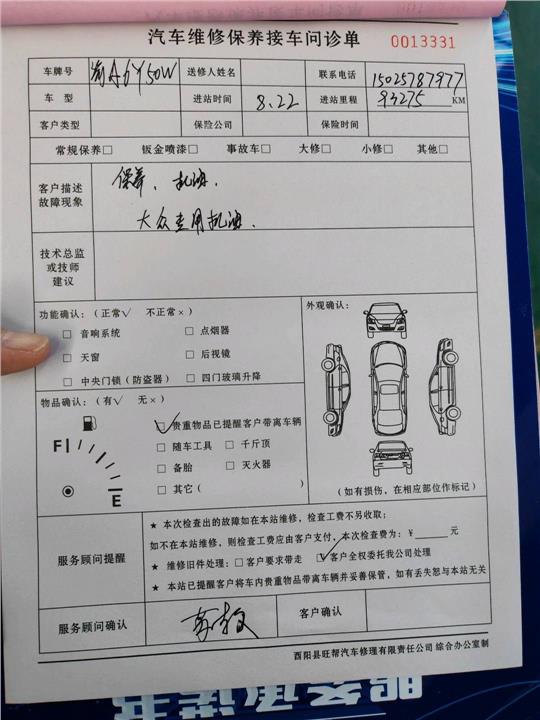 汽车维修保养接车问诊单 0013331
车牌号 渝A6Y50W 送修人姓名 联系电话 15025787977
车 型 进站时间 8.22 进站里程 93275 KM
客户类型 保险公司 保险时间
常规保养□ 钣金喷漆□ 事故车□ 大修□ 小修□ 其他□
客户描述
故障现象
保养、机油
大众专用机油.
技术总监
或技师
建议
功能确认：（正常√ 不正常×） 外观确认：
□ 音响系统 □ 点烟器
□ 天窗 □ 后视镜
□ 中央门锁（防盗器） □ 四门玻璃升降
物品确认：（有√ 无×）
☑ 贵重物品已提醒客户带离车辆
F □ 随车工具 □ 千斤顶
□ 备胎 □ 灭火器
E □ 其它（ ）
（如有损伤，在相应部位作标记）
服务顾问提醒
★ 本次检查出的故障如在本站维修，检查工费不另收取；
如不在本站维修，则检查工费应由客户支付，本次检查费为：¥______元
★ 维修旧件处理：□ 客户要求带走 ☑ 客户全权委托我公司处理
★ 本站已提醒客户将车内贵重物品带离车辆并妥善保管，如有丢失恕与本站无关
服务顾问确认 客户确认
酉阳县旺帮汽车修理有限责任公司 综合办公室制
服务承诺书